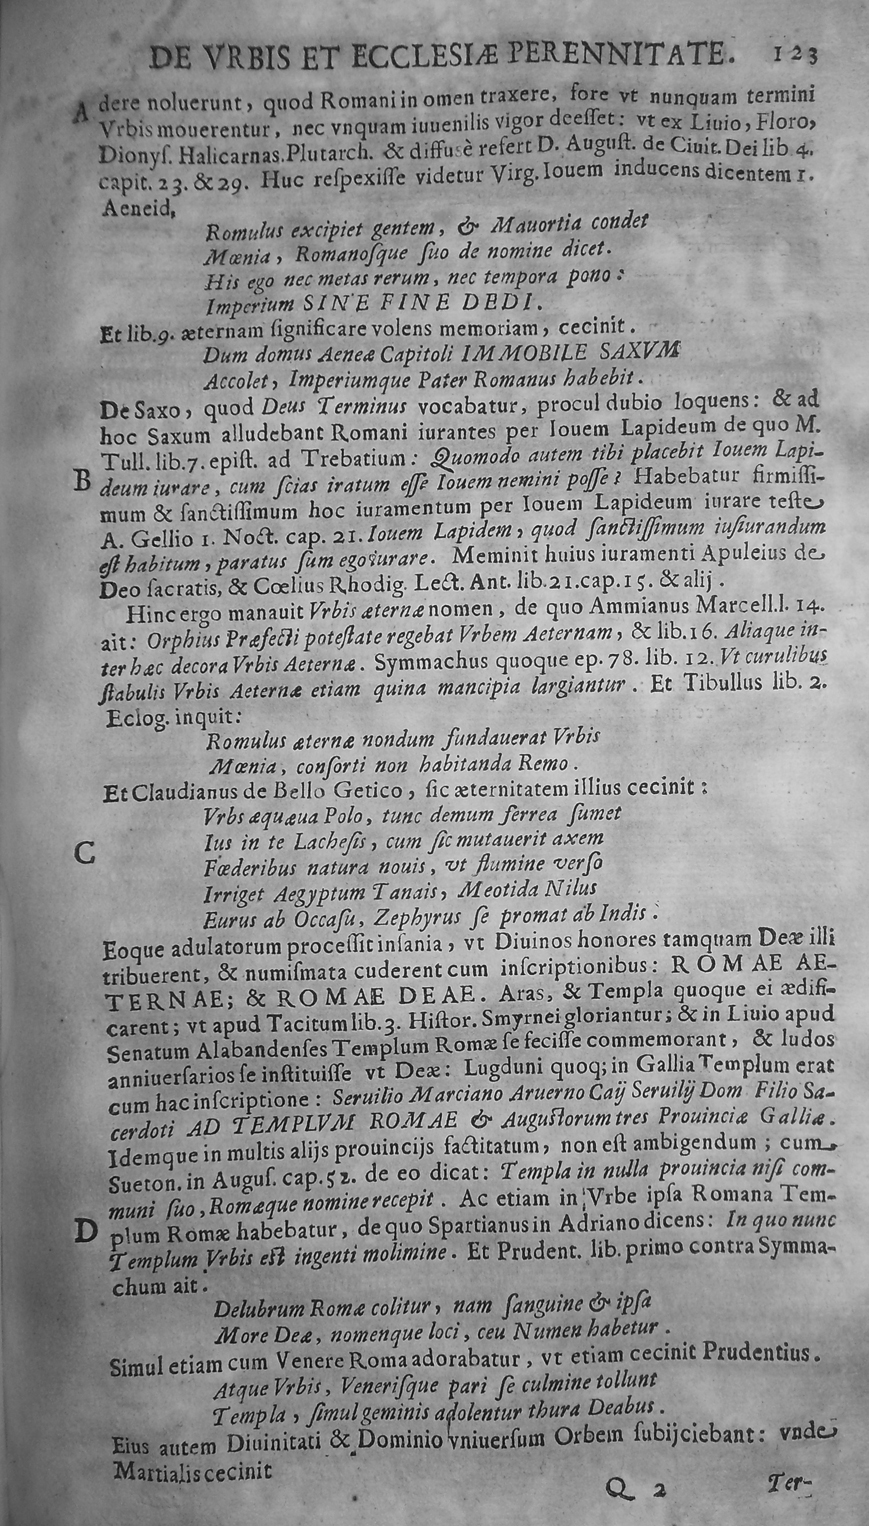 DE VRBIS ET ECCLESIÆ PERENNITATE. 123
A dere noluerunt, quod Romani in omen traxere, fore vt nunquam termini
Vrbis mouerentur, nec vnquam iuuenilis vigor deeſſet: vt ex Liuio, Floro,
Dionyſ. Halicarnas. Plutarch. & diffuſè refert D. Auguſt. de Ciuit. Dei lib 4.
capit. 23. & 29. Huc reſpexiſſe videtur Virg. Iouem inducens dicentem 1.
Aeneid,
Romulus excipiet gentem, & Mauortia condet
Mœnia, Romanoſque ſuo de nomine dicet.
His ego nec metas rerum, nec tempora pono:
Imperium SINE FINE DEDI.
Et lib. 9. æternam ſignificare volens memoriam, cecinit.
Dum domus Aeneæ Capitoli IMMOBILE SAXVM
Accolet, Imperiumque Pater Romanus habebit.
De Saxo, quod Deus Terminus vocabatur, procul dubio loquens: & ad
hoc Saxum alludebant Romani iurantes per Iouem Lapideum de quo M.
Tull. lib. 7. epiſt. ad Trebatium: Quomodo autem tibi placebit Iouem Lapi-
B deum iurare, cum ſcias iratum eſſe Iouem nemini poſſe? Habebatur firmiſſi-
mum & ſanctiſſimum hoc iuramentum per Iouem Lapideum iurare teſte
A. Gellio 1. Noct. cap. 21. Iouem Lapidem, quod ſanctiſſimum iuſiurandum
eſt habitum, paratus ſum ego iurare. Meminit huius iuramenti Apuleius de
Deo ſacratis, & Cœlius Rhodig. Lect. Ant. lib. 21. cap. 15. & alij.
Hinc ergo manauit Vrbis æternæ nomen, de quo Ammianus Marcell. l. 14.
ait: Orphius Præfecti poteſtate regebat Vrbem Aeternam, & lib. 16. Aliaque in-
ter hæc decora Vrbis Aeternæ. Symmachus quoque ep. 78. lib. 12. Vt curulibus
ſtabulis Vrbis Aeternæ etiam quina mancipia largiantur. Et Tibullus lib. 2.
Eclog. inquit:
Romulus æternæ nondum fundauerat Vrbis
Mœnia, conſorti non habitanda Remo.
Et Claudianus de Bello Getico, ſic æternitatem illius cecinit:
Vrbs æquæua Polo, tunc demum ferrea ſumet
C Ius in te Lacheſis, cum ſic mutauerit axem
Fœderibus natura nouis, vt flumine verſo
Irriget Aegyptum Tanais, Meotida Nilus
Eurus ab Occaſu, Zephyrus ſe promat ab Indis.
Eoque adulatorum proceſſit inſania, vt Diuinos honores tamquam Deæ illi
tribuerent, & numiſmata cuderent cum inſcriptionibus: ROMAE AE-
TERNAE; & ROMAE DEAE. Aras, & Templa quoque ei ædifi-
carent; vt apud Tacitum lib. 3. Hiſtor. Smyrnei gloriantur; & in Liuio apud
Senatum Alabandenſes Templum Romæ ſe feciſſe commemorant, & ludos
anniuerſarios ſe inſtituiſſe vt Deæ: Lugduni quoq; in Gallia Templum erat
cum hac inſcriptione: Seruilio Marciano Aruerno Caij Seruilij Dom Filio Sa-
cerdoti AD TEMPLVM ROMAE & Auguſtorum tres Prouinciæ Galliæ.
Idemque in multis alijs prouincijs factitatum, non eſt ambigendum; cum
Sueton. in Auguſ. cap. 52. de eo dicat: Templa in nulla prouincia niſi com-
muni ſuo, Romæque nomine recepit. Ac etiam in Vrbe ipſa Romana Tem-
D plum Romæ habebatur, de quo Spartianus in Adriano dicens: In quo nunc
Templum Vrbis eſt ingenti molimine. Et Prudent. lib. primo contra Symma-
chum ait.
Delubrum Romæ colitur, nam ſanguine & ipſa
More Deæ, nomenque loci, ceu Numen habetur.
Simul etiam cum Venere Roma adorabatur, vt etiam cecinit Prudentius.
Atque Vrbis, Veneriſque pari ſe culmine tollunt
Templa, ſimul geminis adolentur thura Deabus.
Eius autem Diuinitati & Dominio vniuerſum Orbem ſubijciebant: vnde
Martialis cecinit
Q 2 Ter-